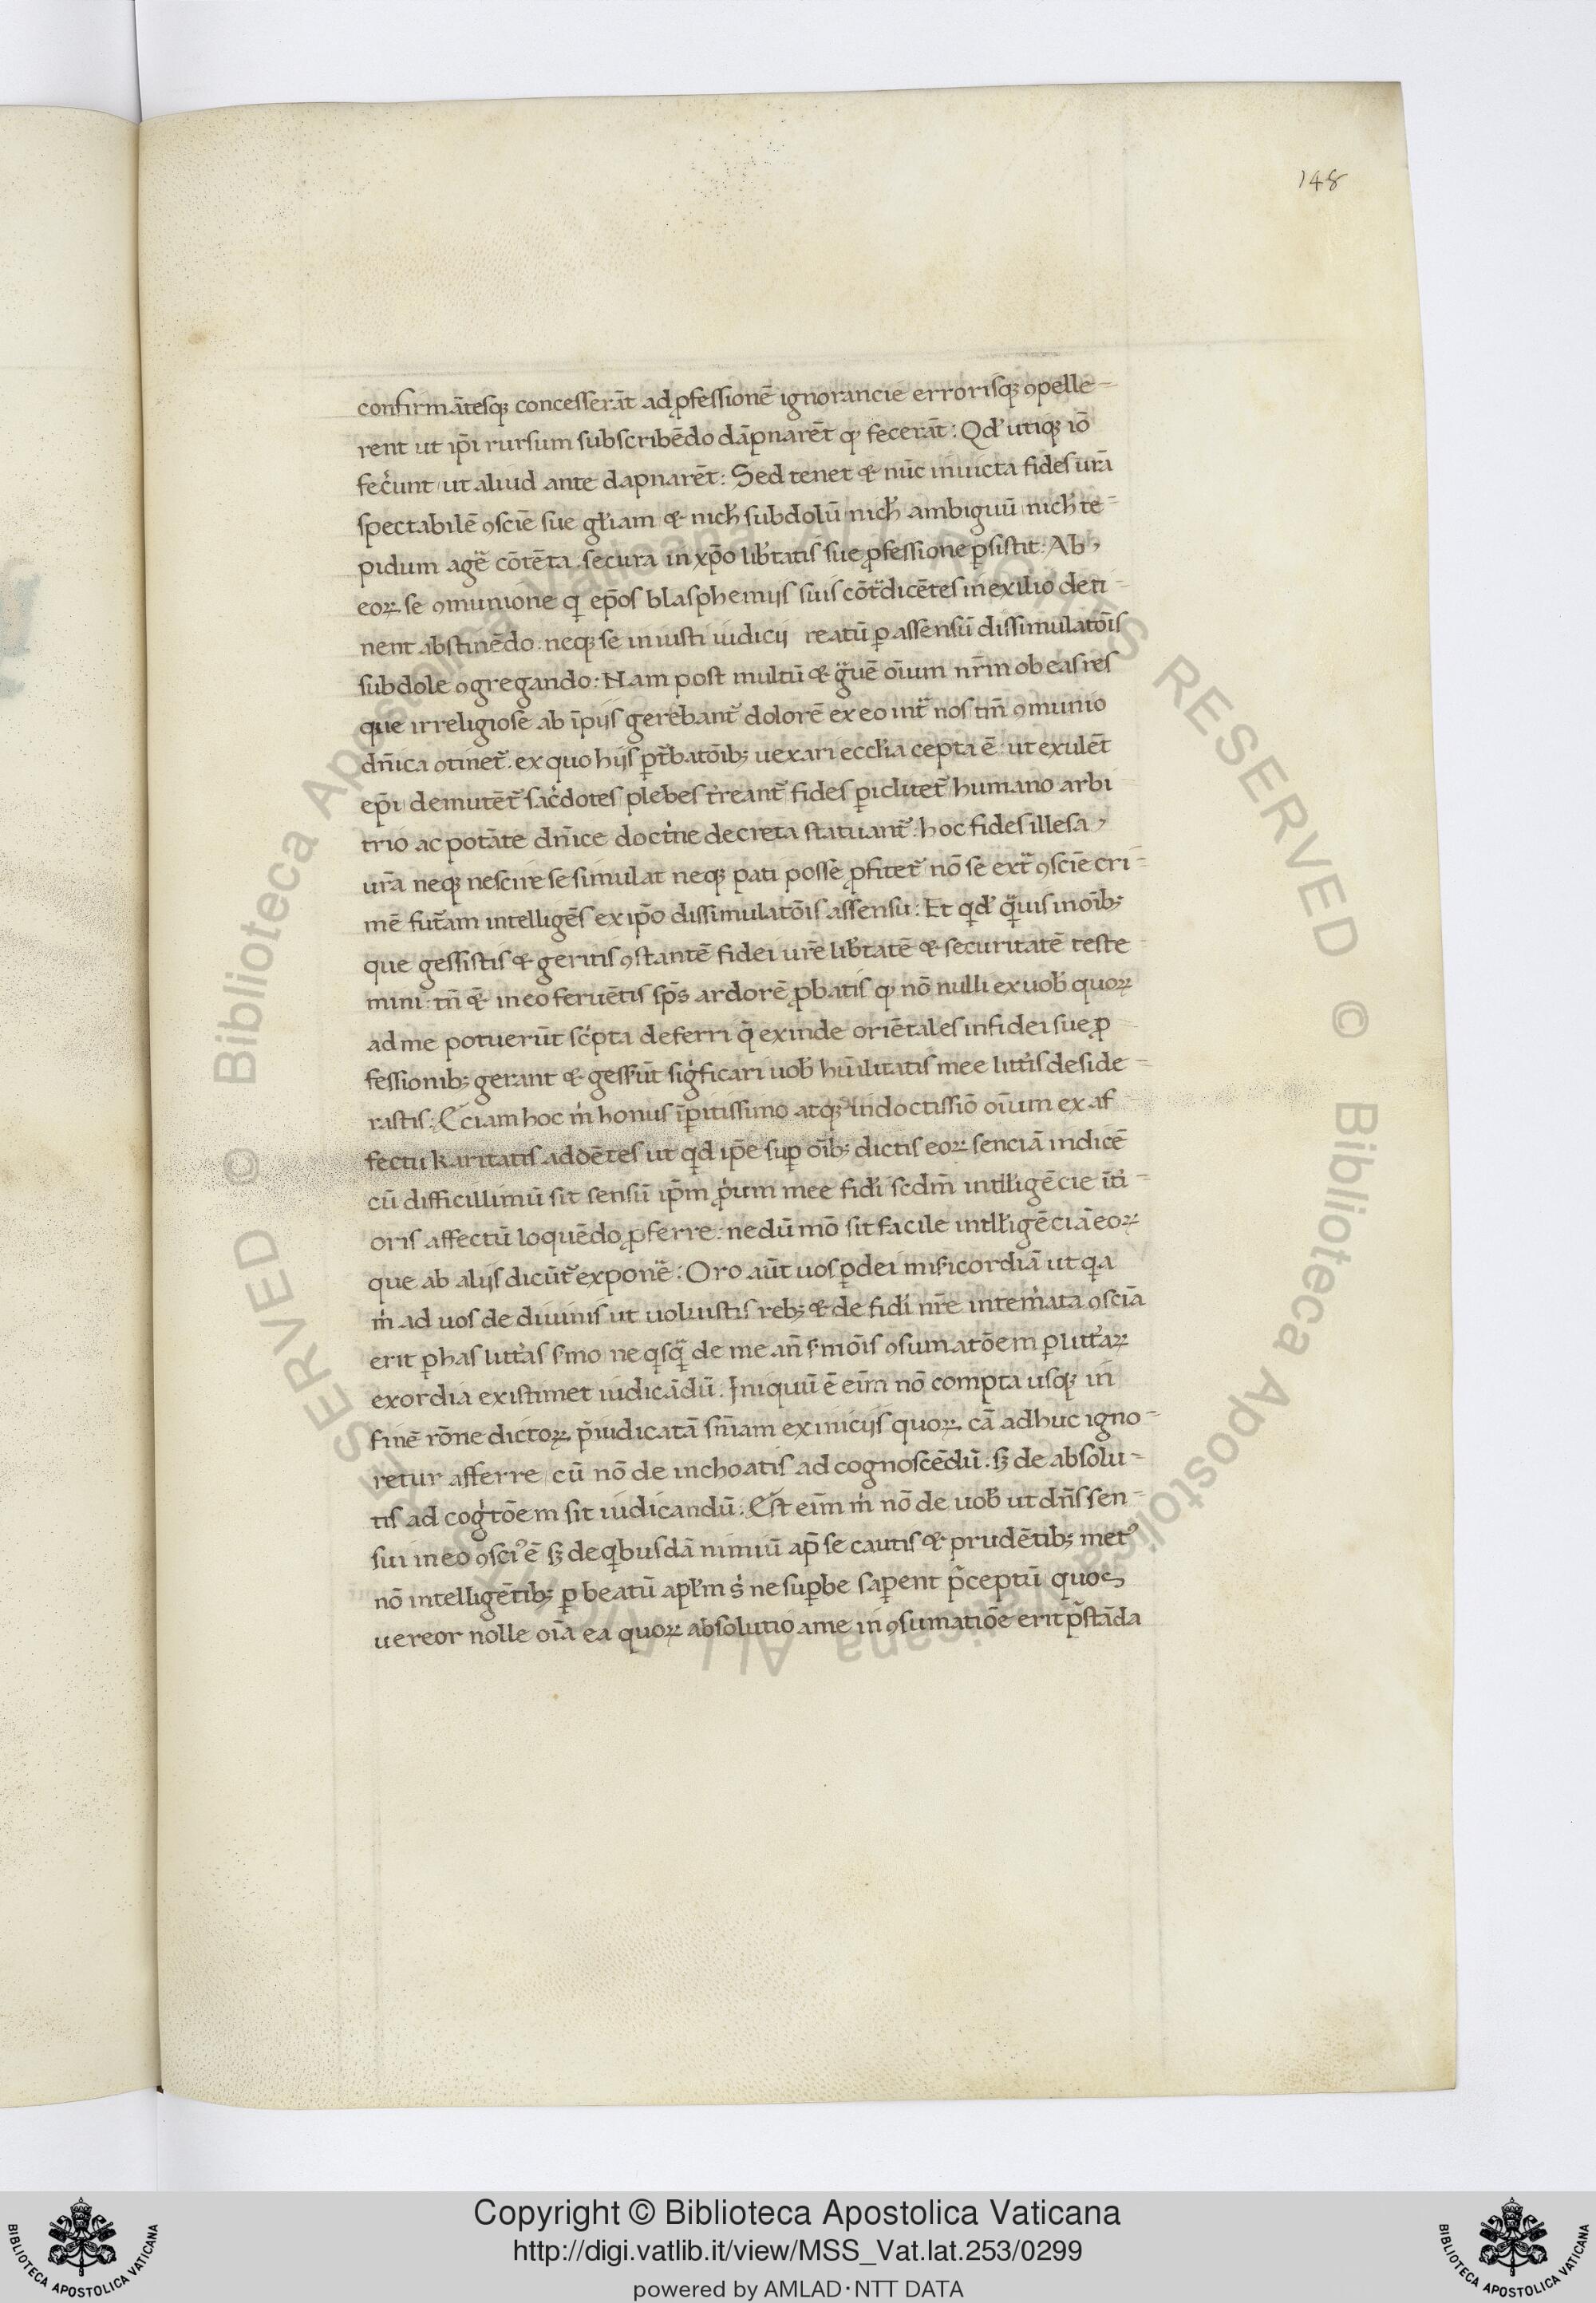 148
confirmātesqꝫ concesserāt ad ꝓfessionē ignorancie errorisqꝫ ꝯpelle-
rent ut ip̄i rursum subscribēdo dāpnarēt ꝙ fecerāt: Qd' utiqꝫ iō
fec̓unt ut aliud ante dapnarēt: Sed tenet & nūc inuicta fides ur̄a
spectabilē ꝯscīe sue gl'iam & nich' subdolū nich' ambiguū nich' te-
pidum agē cōtēta secura in xp̄o lib'tatis sue ꝓfessione ꝑsistit: Ab
eoꝝ se ꝯmunione q̄ ep̄os blasphemijs suis cōtᵃdicētes in exilio deti-
nent abstinēdo: neqꝫ se iniusti iudicij reatū ꝑ assensū dissimulatōis
subdole ꝯgregando: Nam post multū & gᵃuē oīum nr̄m ob eas res
que irreligiose ab īpijs gerebant᷑ dolorē ex eo int̄ nos tm̄ ꝯmunio
dn̄ica ꝯtinet᷑. ex quo hijs ꝑt᷑batōibꝫ uexari eccl'ia cepta ē: ut exulēt
ep̄i demutēt᷑ sac̓dotes plebes t̓reant᷑ fides ꝑiclitet᷑ humano arbi
trio ac potāte dn̄ice doct̓ne decreta statuant᷑: hoc fides illesa
ur̄a neqꝫ nescire se simulat neqꝫ pati posse ꝓfitet᷑ nō se extᵃ ꝯscīe cri-
mē fut᷑am intelligēs ex ip̄o dissimulatōis assensu: Et qd' qᵃuis in oībꝫ
que gessistis & geritis ꝯstantē fidei ur̄e lib'tatē & securitatē teste
mini: tn̄ & in eo feruētis sp̄s ardorē ꝓbatis ꝙ nō nulli ex uob' quoꝝ
ad me potuerūt sc̓pta deferri q̄ exinde oriētales in fidei sue ꝓ
fessionibꝫ gerant & gesserūt sig̓ficari uob' hūilitatis mee litt̓is deside-
rastis: Eciam hoc m̓ honus īꝑitissimo atqꝫ indoctissīo oīum ex af
fectu karitatis addētes ut qd ip̄e suꝑ oībꝫ dictis eoꝝ senciā indicē
cū difficillimū sit sensū ip̄m ꝓ̓um mee fid'i scd̄m intll'igēcie īt̓i-
oris affectū loquēdo ꝓferre: nedū mō sit facile intll'igēciā eoꝝ
que ab alijs dicūt᷑ exponē: Oro aūt uos ꝑ dei mis'icordiā ut qa
m̓ ad uos de diuinis ut uoluistis rebꝫ & de fid'i nr̄e intem̓ata ꝯsciā
erit ꝑ has litt̓as s'mo ne qsqᵃ de me an̄ s'mōis ꝯsumatōem ꝑ litt̓aꝝ
exordia existimet iudicādū. Iniquū ē eīm nō compta usqꝫ in
finē rōne dictoꝝ p̄iudicatā sn̄iam ex inicijs quoꝝ cā adhuc igno-
retur afferre cū nō de inchoatis ad cognoscēdū. sꝫ de absolu-
tis ad cog̓tōem sit iudicandū: Est eīm m̓ nō de uob' ut dn̄s sen-
sui in eo ꝯsci᷒ ē sꝫ de qbusdā nimiū ap̄ se cautis & prudētibꝫ met᷒
nō intelligētibꝫ ꝑ beatū apl'm s̓ ne suꝑbe saꝑent p̄ceptū quos
uereor nolle oīa ea quoꝝ absolutio a me in ꝯsumatiōe erit p̄stāda
Copyright © Biblioteca Apostolica Vaticana
http://digi.vatlib.it/view/MSS_Vat.lat.253/0299
powered by AMLAD·NTT DATA